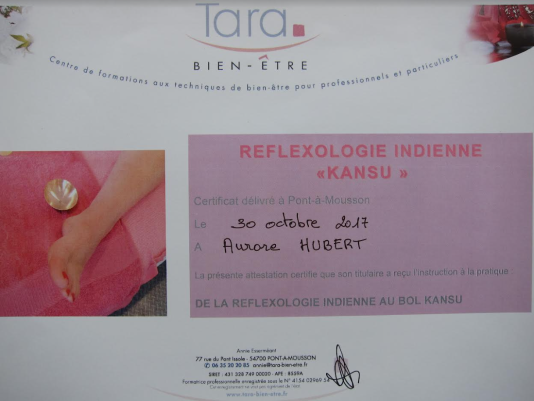 Tara
BIEN-ÊTRE
Centre de formations aux techniques de bien-être pour professionnels et particuliers
REFLEXOLOGIE INDIENNE
«KANSU »
Certificat délivré à Pont-à-Mousson
Le 30 octobre 2017
A Aurore HUBERT
La présente attestation certifie que son titulaire a reçu l'instruction à la pratique
DE LA REFLEXOLOGIE INDIENNE AU BOL KANSU
77 rue du Pont Issole - 54700 PONT-A-MOUSSON
✆ 06 35 20 20 85 annie@tara-bien-etre.fr
SIRET : 431 328 749 00020 - APE : 8559A
Formatrice professionnelle enregistrée sous le N° 4154 03969 54
Cet enregistrement ne vaut pas agrément de l'état
www.tara-bien-etre.fr